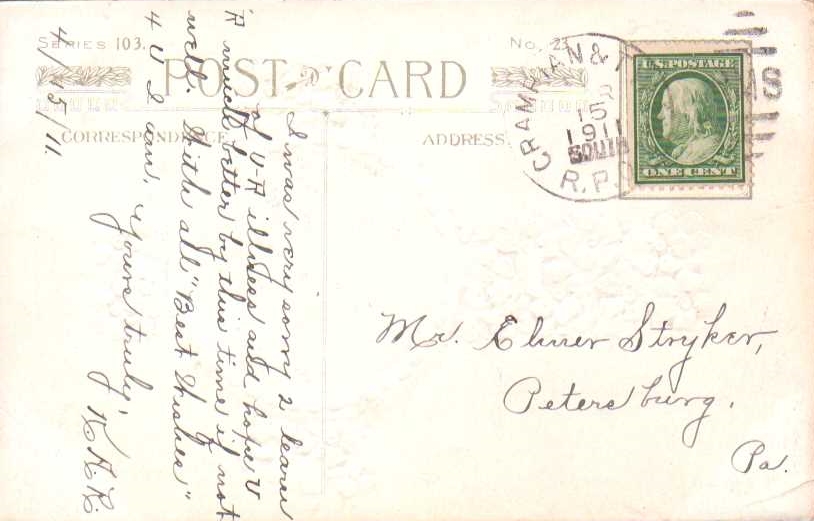 SERIES 103.
No. 2
POST CARD
CORRESPONDENCE
ADDRESS.
U.S. POSTAGE
ONE CENT
15
1911
SOUTH
R.P.
I was very sorry 2 learn
of U-R illness and hope U
R much better by this time if not
well. With all "Best Wishes"
4 U I am, Yours truly,
4/15/11.
Mr. Elmer Stryker,
Petersburg.
Pa.